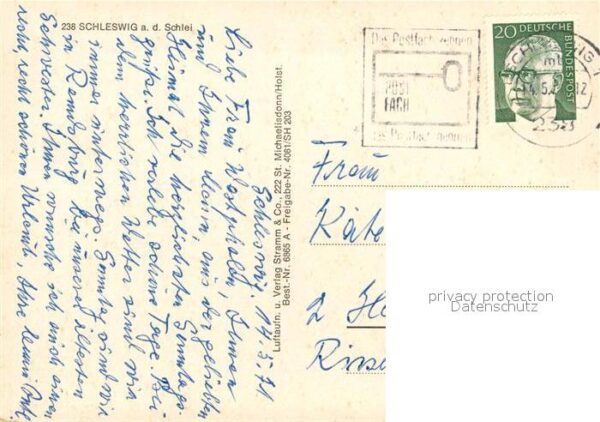 238 SCHLESWIG a. d. Schlei
Schleswig, 14.5.71
Liebe Frau Westphalen, Ihnen
und Ihrem Mann, aus der geliebten
Heimat die herzlichsten Sonntags-
grüße. Ich verlebe schöne Tage. Bei
dem herrlichen Wetter sind wir
immer unterwegs. Sonntag sind wir
in Rendsburg bei unserer ältesten
Schwester. Ihnen wünsche ich auch einen
recht, recht schönen Urlaub. Ihre
Luftaufn. u. Verlag Stramm & Co., 222 St. Michaelisdonn/Holst.
Best.-Nr. 6865 A - Freigabe-Nr. 4061/SH 203
Das Postfach nennen
POST
FACH
Das Postfach nennen
20 DEUTSCHE
BUNDESPOST
238
Frau
Käte
2
privacy protection
Datenschutz